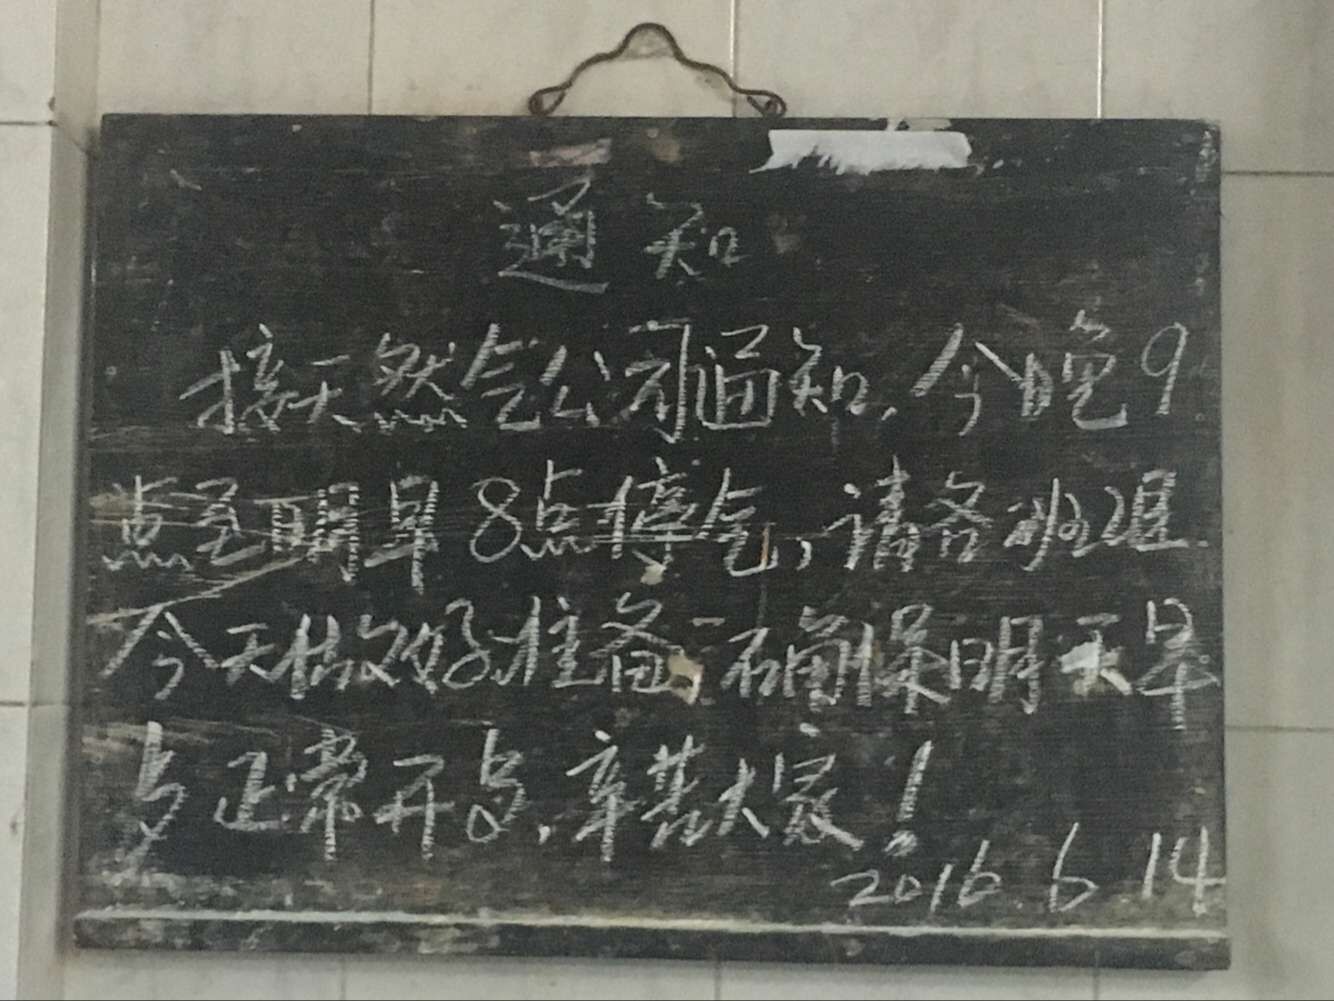 通知
接天然气公司通知,今晚9
点至明早8点停气,请各班组
今天做好准备,确保明天早
点正常开点,辛苦大家!
2016.6.14